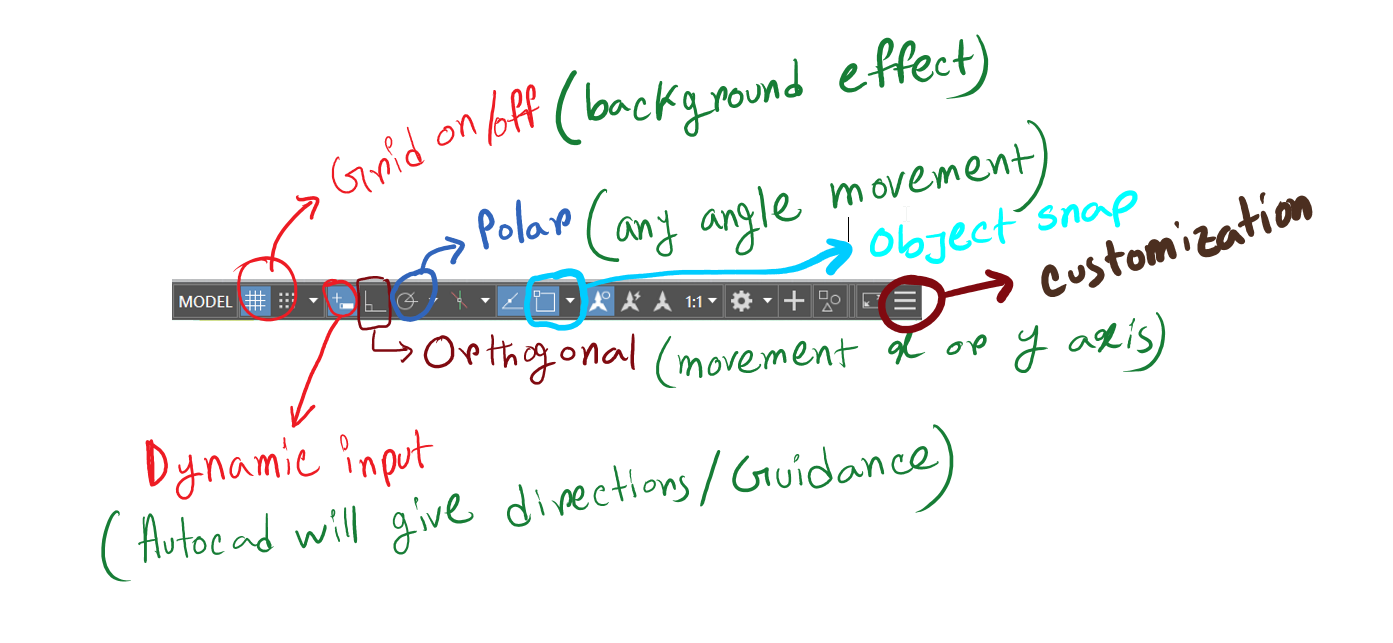 Grid on/off (background effect)
Polar (any angle movement)
Object snap
Customization
MODEL
1:1
Orthogonal (movement x or y axis)
Dynamic input
(Autocad will give directions/Guidance)